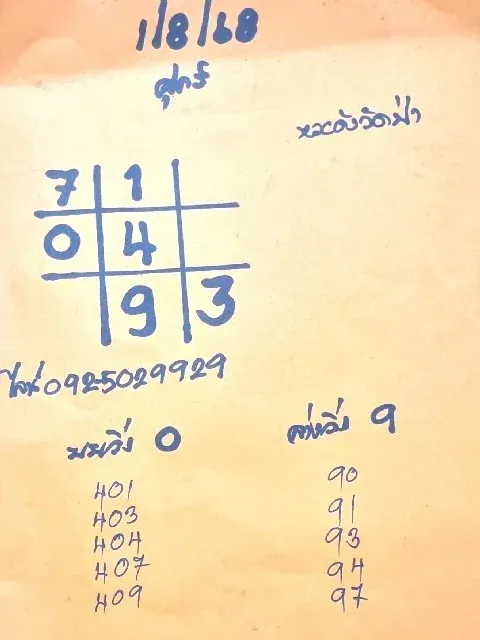 1/8/68
ศุกร์
พระดังวัดป่า
7 1
0 4
9 3
ไลน์ 0925029929
บนวิ่ง 0
ล่างวิ่ง 9
401
403
404
407
409
90
91
93
94
97